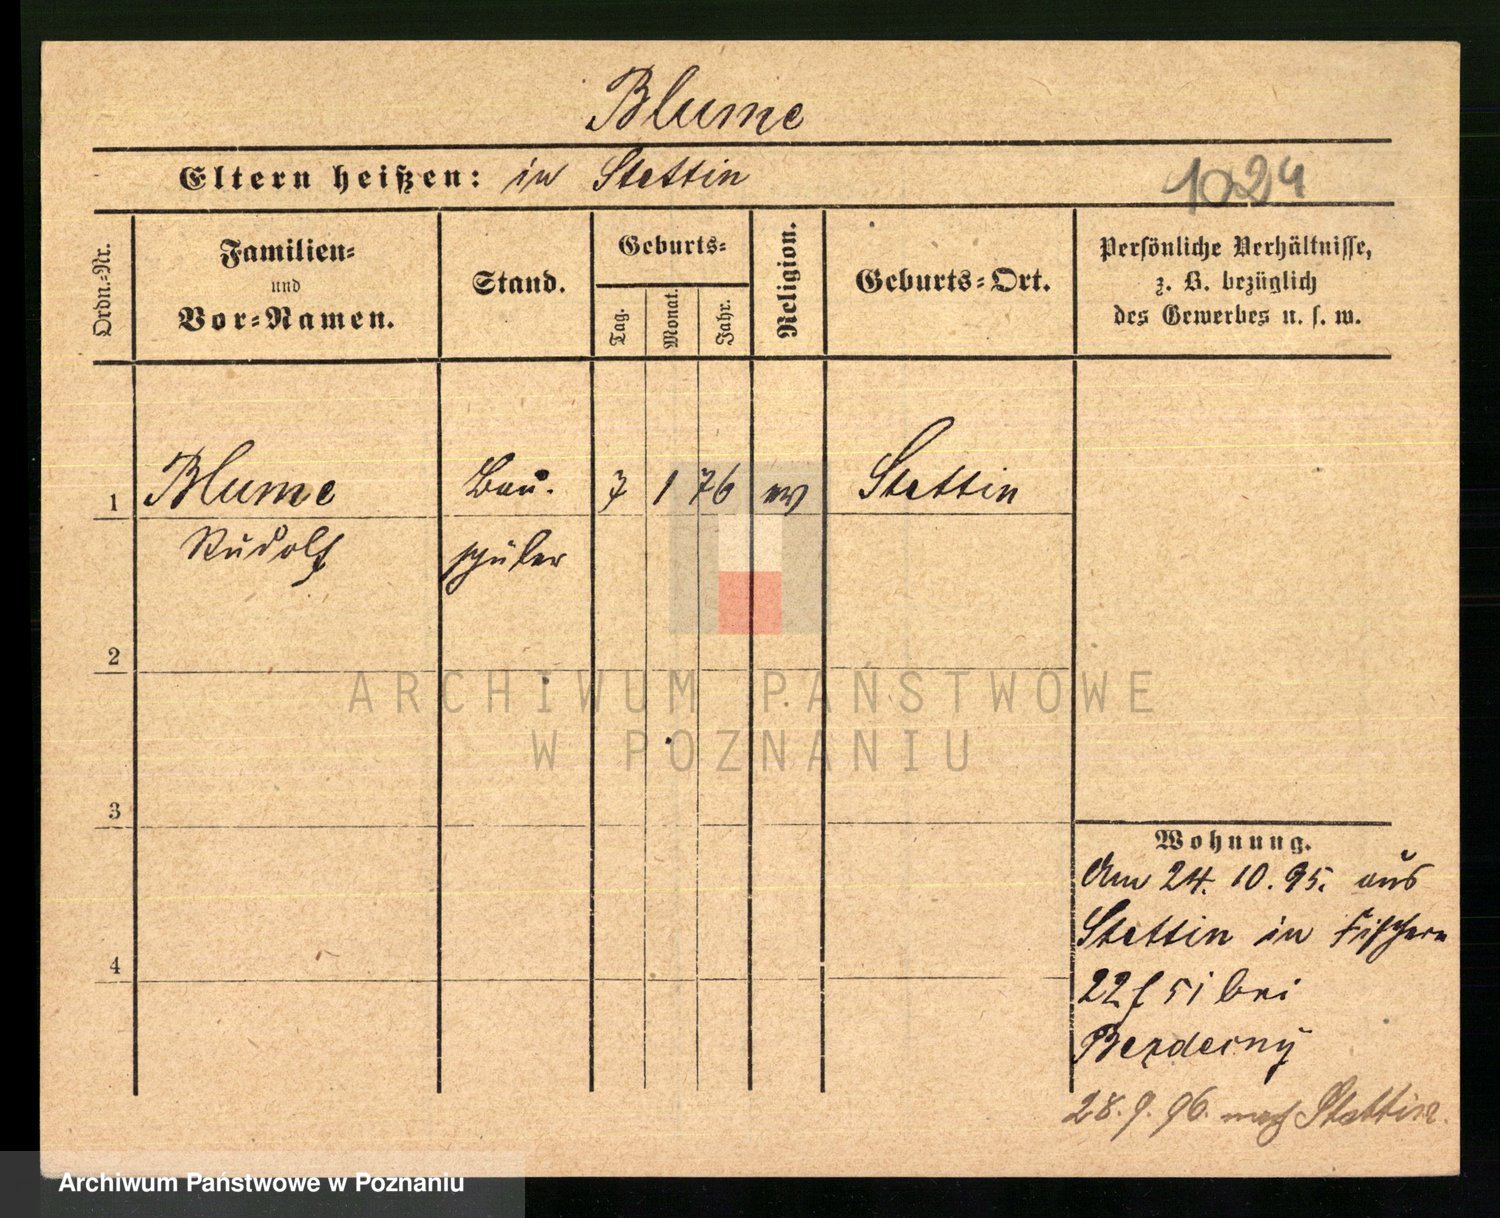 Blume
Eltern heißen: in Stettin
1024
Ordn.-Nr.
Familien-
und
Vor-Namen.
Stand.
Geburts-
Tag.
Monat.
Jahr.
Religion.
Geburts-Ort.
Persönliche Verhältnisse,
z. B. bezüglich
des Gewerbes u. s. w.
1 Blume Bau- 7 1 76 ev Stettin
Rudolf schüler
2
3
4
Wohnung.
Am 24. 10. 95. aus
Stettin in Fischerei
22 51 bei
28. 9. 96. nach Stettin.
ARCHIWUM PAŃSTWOWE
W POZNANIU
Archiwum Państwowe w Poznaniu